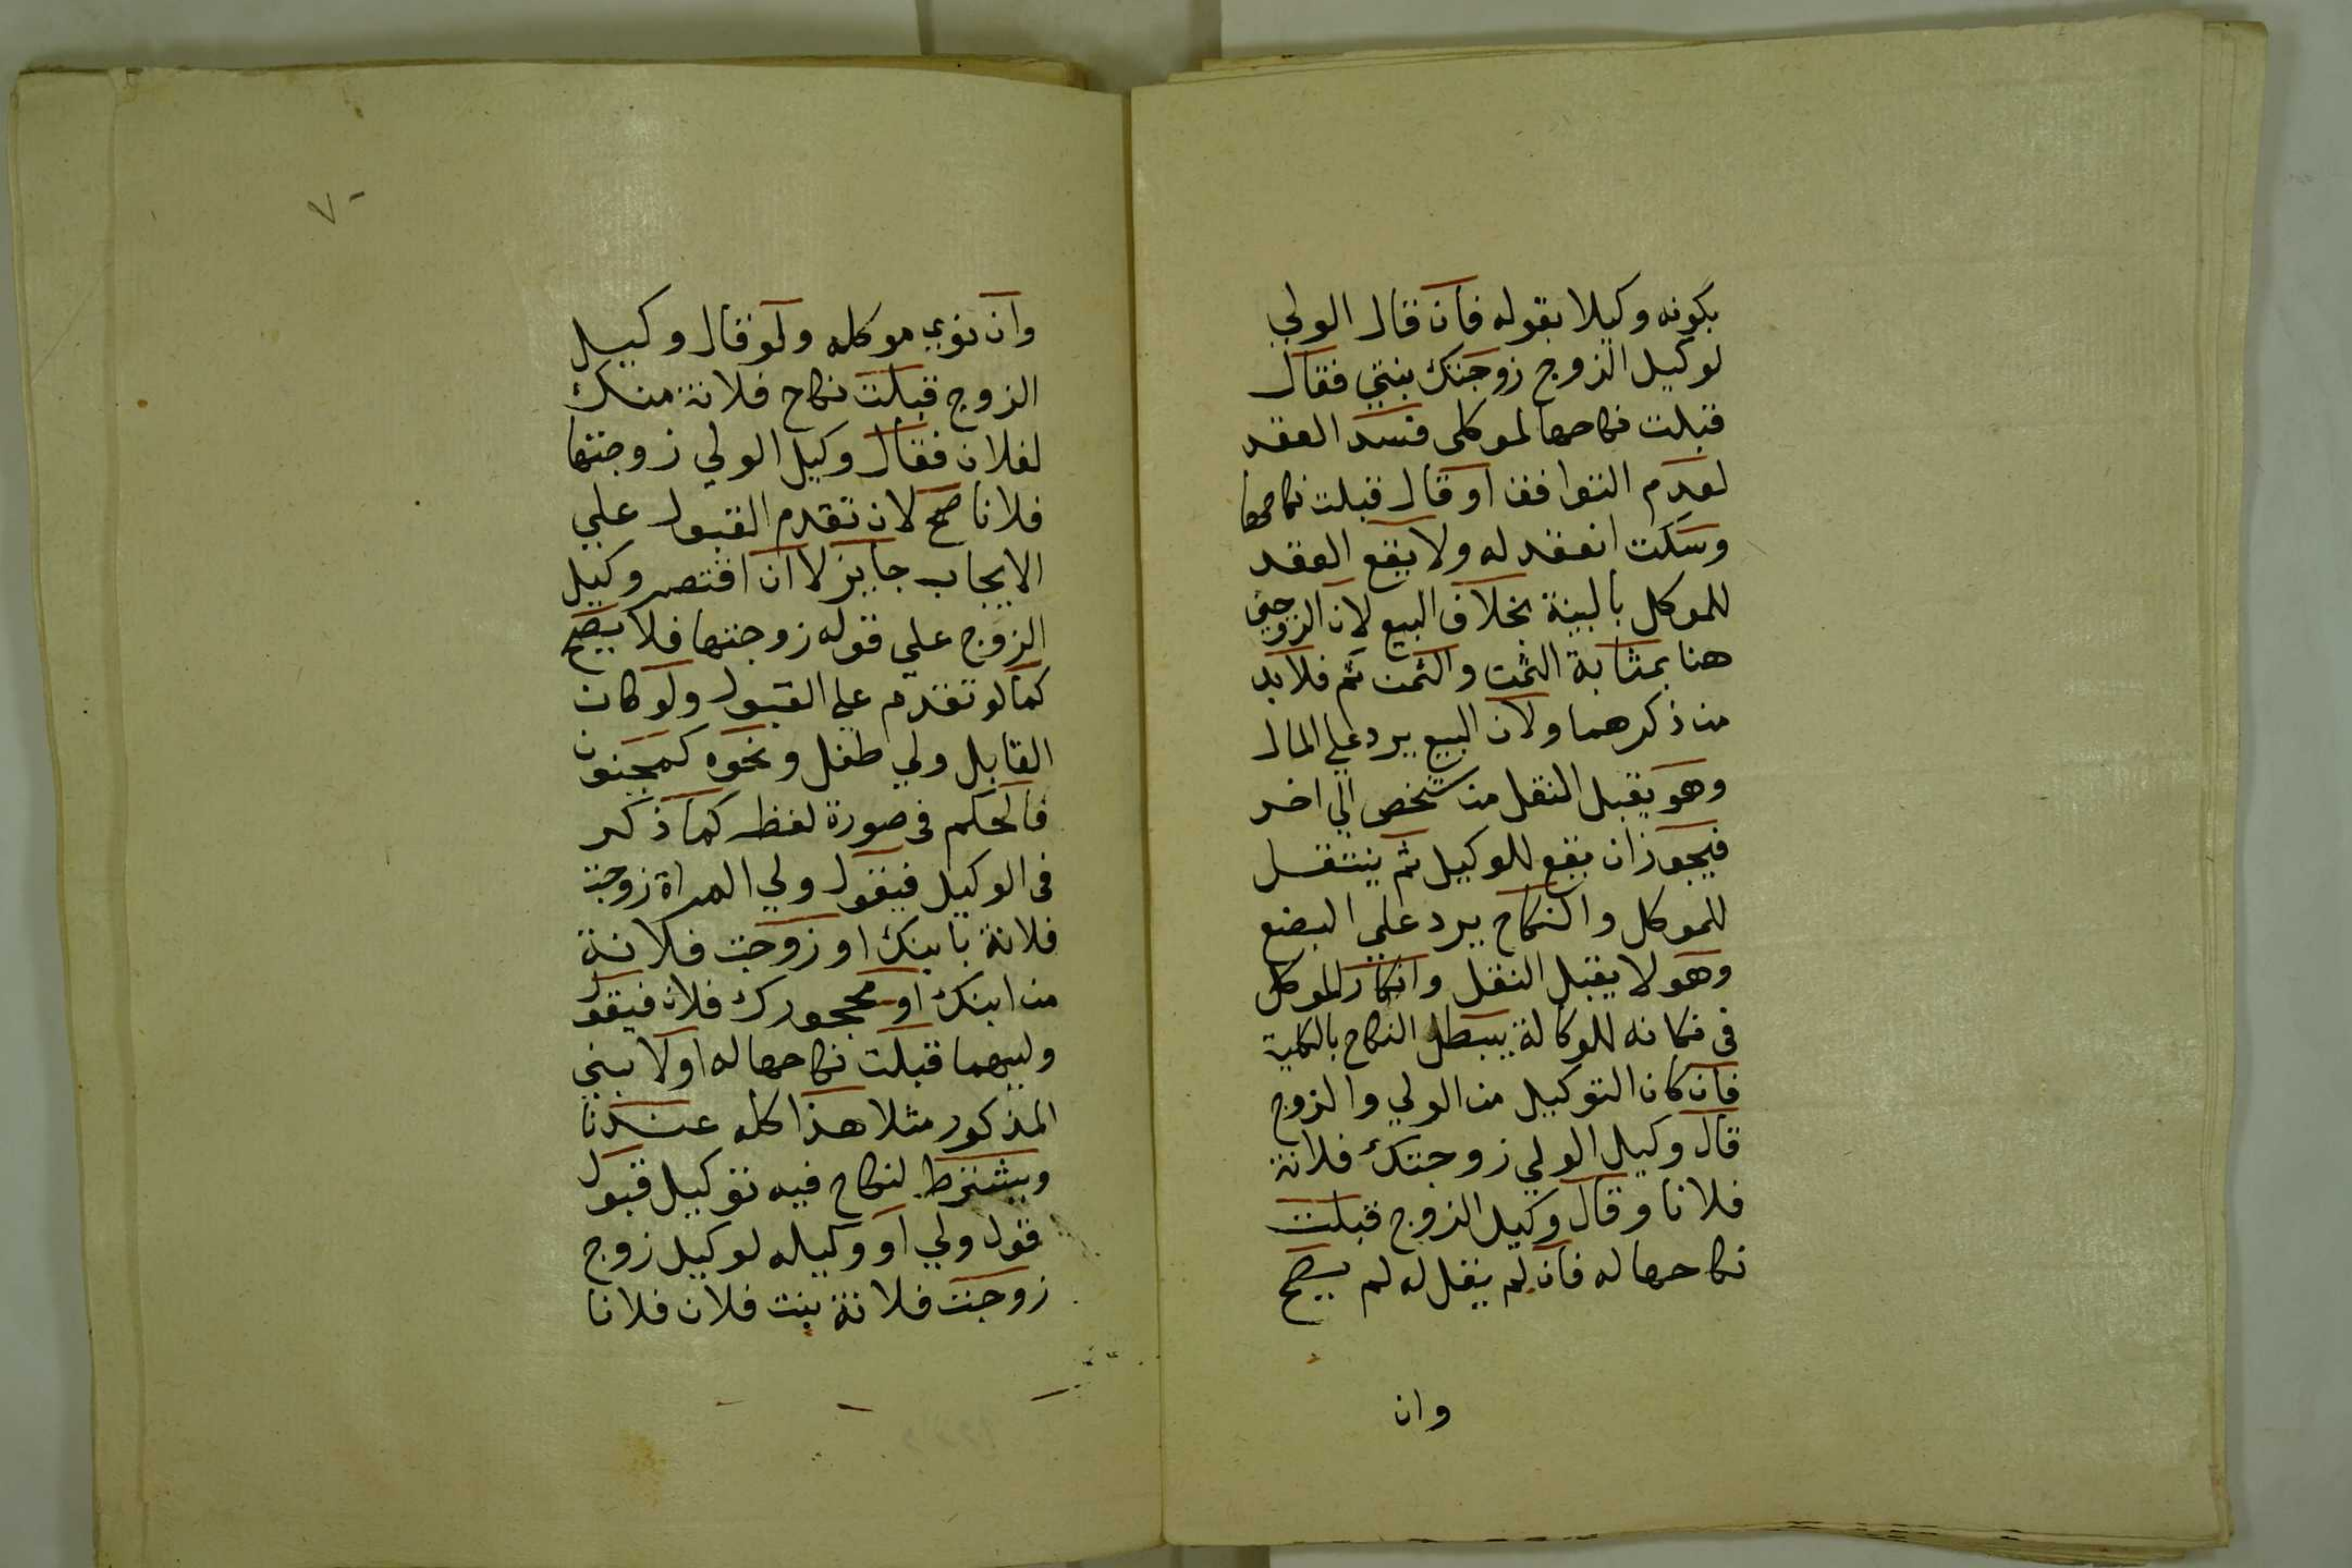 بكونه وكيلا بقوله فان قال الولي
لوكيل الزوج زوجتك بنتي فقال
قبلت نكاحها لموكلى فسد العقد
لعدم التوافق او قال قبلت نكاحها
وسكت انعقد له ولا يقع العقد
للموكل بالبينة بخلاف البيع لان الزوجين
هنا بمثابة الثمن والثمن ثم فلا بد
من ذكرهما ولان البيع يرد علي المال
وهو يقبل النقل من شخص الي اخر
فيجوز ان يقع للوكيل ثم ينتقل
للموكل والنكاح يرد علي البضع
وهو لا يقبل النقل وانكار الموكل
فى نكاحه للوكالة يبطل النكاح بالكلية
فان كان التوكيل من الولي والزوج
قال وكيل الولي زوجتك فلانة
فلانا وقال وكيل الزوج قبلت
نكاحها له فان لم يقل له لم يصح
وان
٧٠
وان نوي موكله ولو قال وكيل
الزوج قبلت نكاح فلانة منك
لفلان فقال وكيل الولي زوجتها
فلانا صح لان تقدم القبول علي
الايجاب جايز لا ان اقتصر وكيل
الزوج علي قوله زوجتها فلا يصح
كما لو تقدم على القبول ولو كان
القابل ولي طفل ونحوه كمجنون
فالحكم فى صورة لفظه كما ذكر
فى الوكيل فيقول ولي المراة زوجت
فلانة بابنك او زوجت فلانة
من ابنك او محجورك فلان فيقول
وليهما قبلت نكاحها له او لابني
المذكور مثلا هذا كله عندنا
ويشترط لنكاح فيه توكيل قبول
قول ولي او وكيله لوكيل زوج
زوجت فلانة بنت فلان فلانا